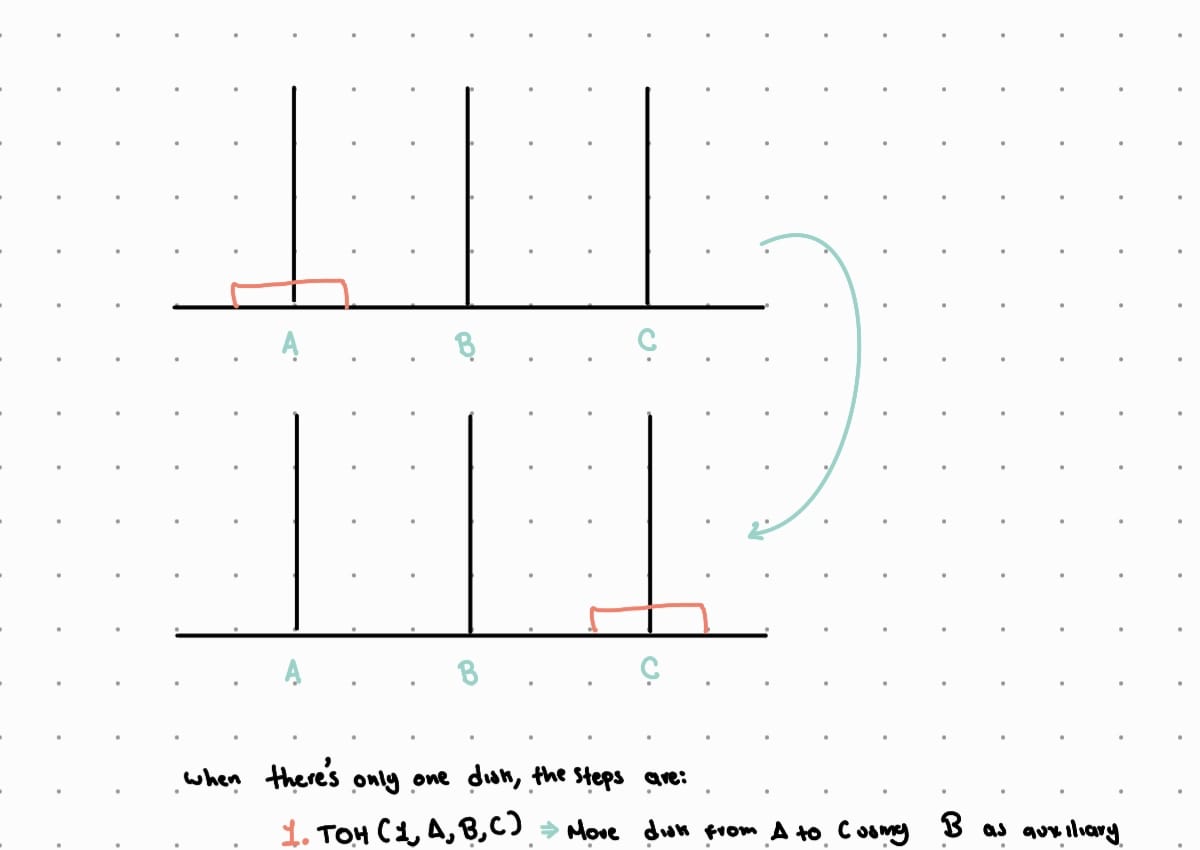 A B C
A B C
when there's only one disk, the steps are:
1. TOH (1, A, B, C) ⇒ Move disk from A to C using B as auxiliary